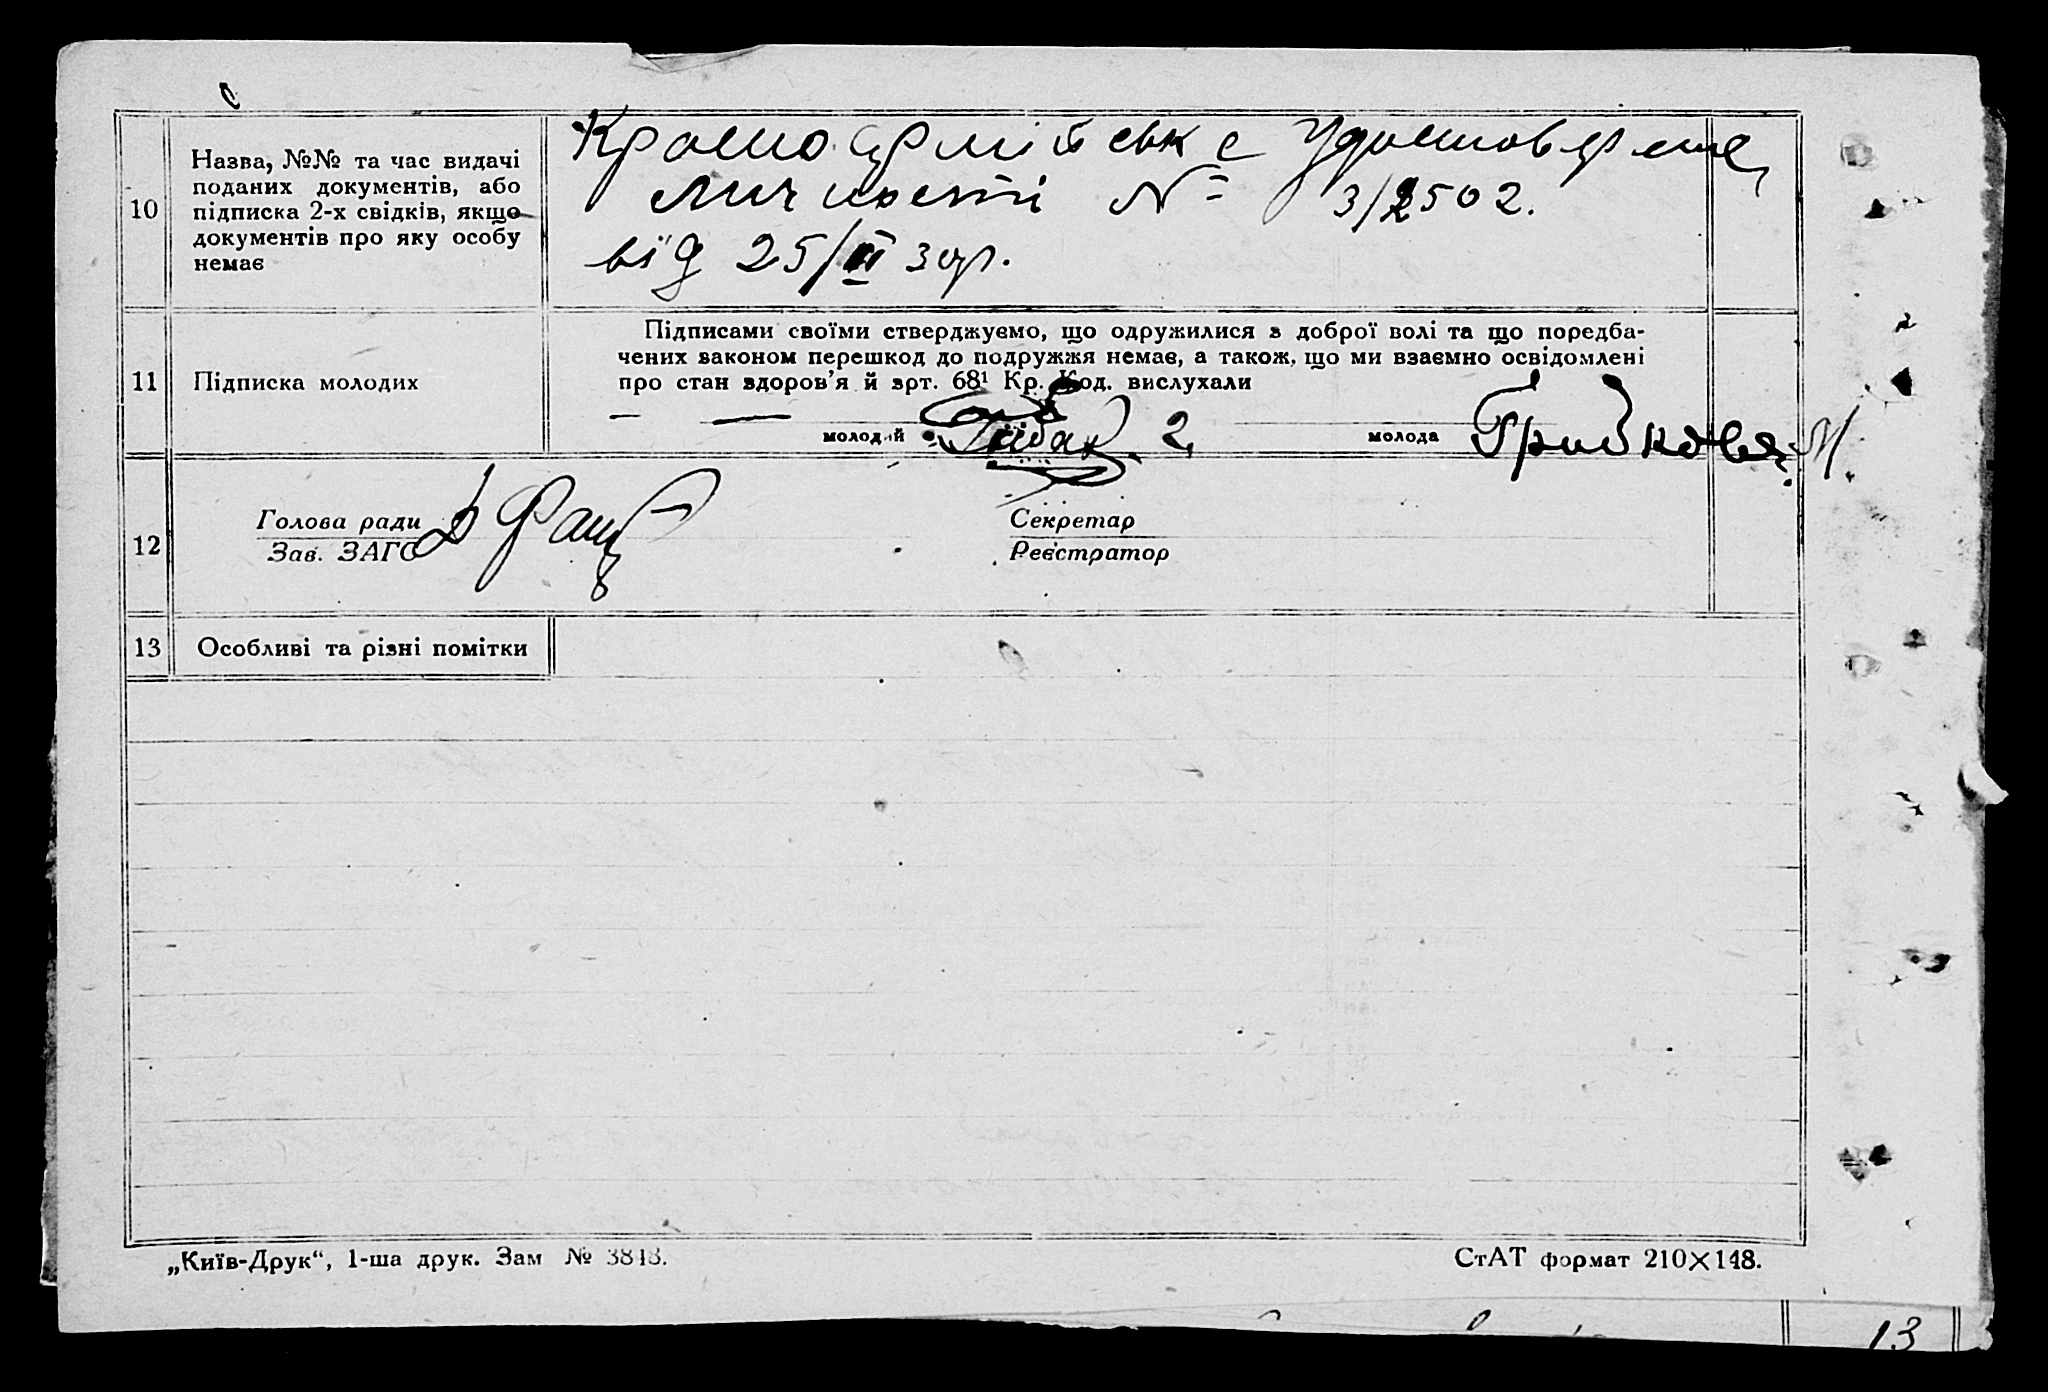 10
Назва, №№ та час видачі
поданих документів, або
підписка 2-х свідків, якщо
документів про яку особу
немає
Красноармійське Удостовереніе
личності № 3/2502.
від 25/II 30р.
11
Підписка молодих
Підписами своїми стверджуємо, що одружилися з доброї волі та що поредба-
чених законом перешкод до подружжя немає, а також, що ми взаємно освідомлені
про стан здоров’я й арт. 68¹ Кр. Код. вислухали
молодий
молода
12
Голова ради
Зав. ЗАГС
Секретар
Реєстратор
13
Особливі та різні помітки
„Київ-Друк“, 1-ша друк. Зам № 3843.
СтАТ формат 210×148.
13